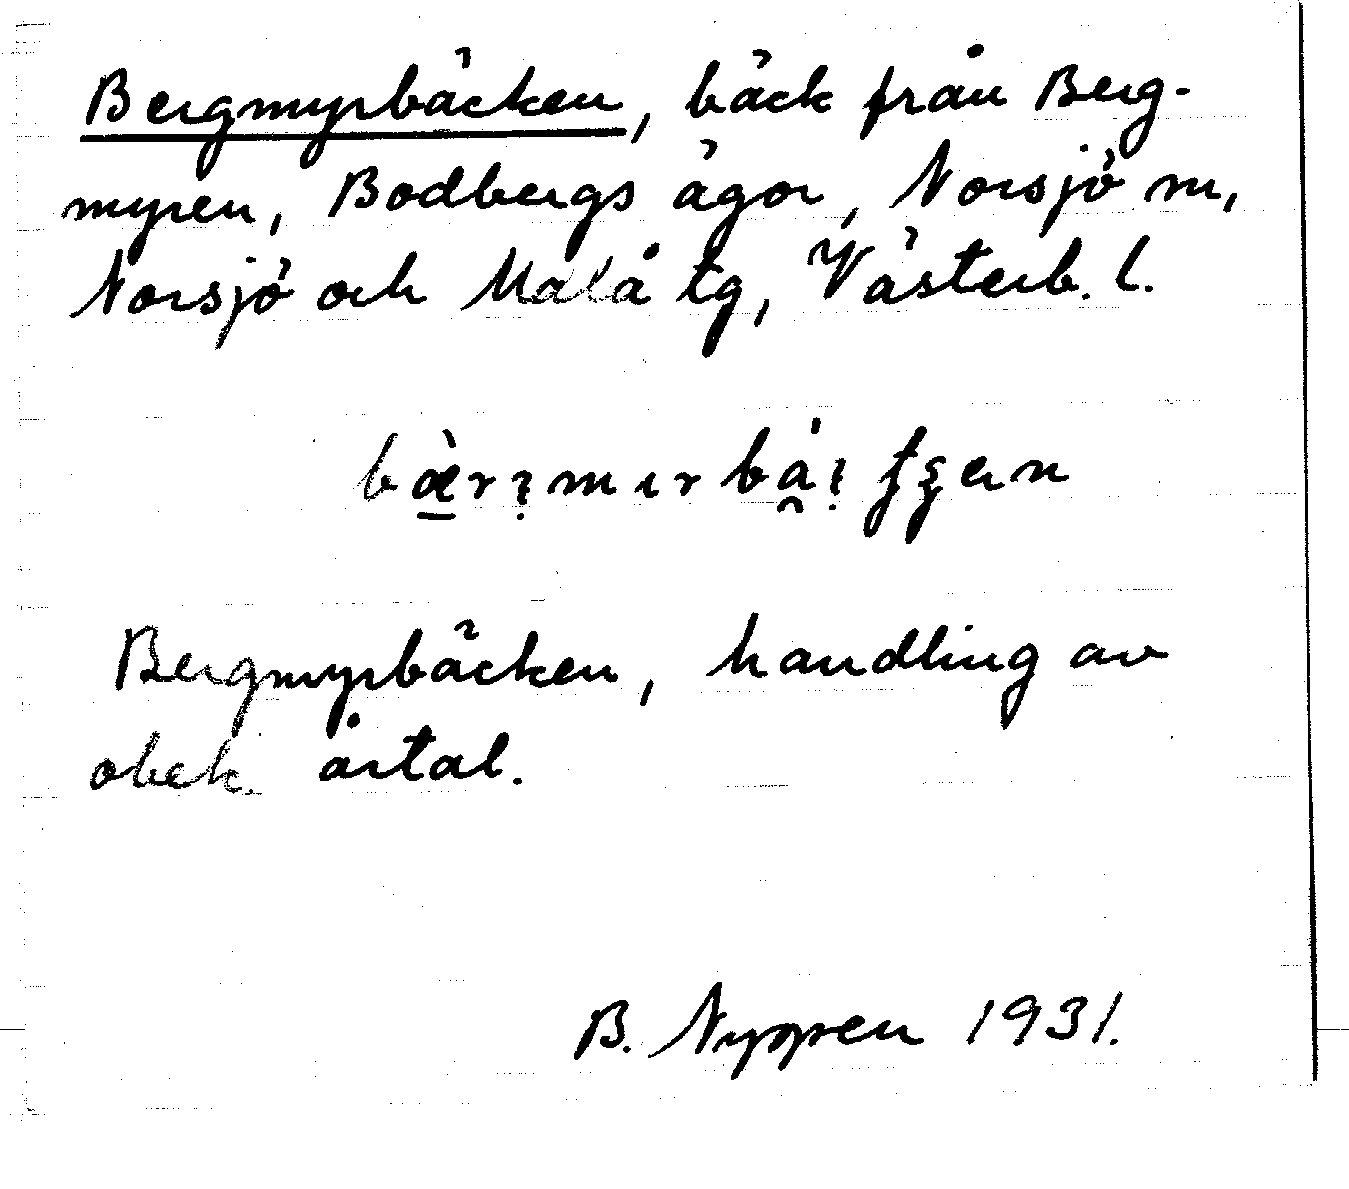 Bergmyrbäcken, bäck från Berg-
myren, Bodbergs ägor, Norsjö sn,
Norsjö och Malå tg, Västerb. l.
Bergmyrbäcken, handling av
obek. årtal.
B. Nygren 1931.